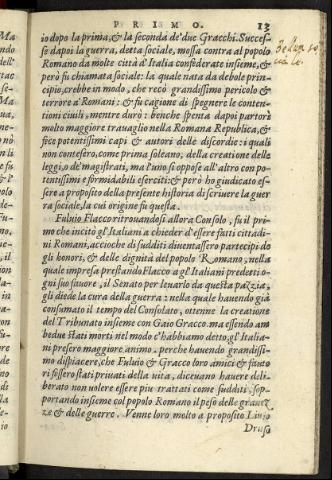 PRIMO. 13
io dopo la prima, & la seconda de' due Gracchi. Succes-
se dapoi la guerra, detta sociale, mossa contra al popolo
Romano da molte città d'Italia confederate insieme, &
però fu chiamata sociale: la quale nata da debole prin-
cipio, crebbe in modo, che recò grandissimo pericolo &
terrore a' Romani: & fu cagione di spegnere le conten-
tioni ciuili, mentre durò: benche spenta dapoi partorì
molto maggiore trauaglio nella Romana Republica, &
fece potentissimi capi & autori delle discordie: i quali
non contesero, come prima soleano, della creatione delle
leggi, o de' magistrati, ma l'uno si oppose all'altro con po-
tentissimi e formidabili eserciti: & però ho giudicato es-
sere a proposito della presente historia di scriuere la guer
ra sociale, la cui origine fu questa.
Fuluio Flacco ritrouandosi allora Consolo, fu il pri
mo che incitò gl'Italiani a chieder d'essere fatti cittadi-
ni Romani, accioche di sudditi diuentassero partecipi de
gli honori, & delle dignità del popolo Romano, nella
quale impresa prestando Flacco a gl'Italiani predetti o-
gni suo fauore, il Senato per leuarlo da questa pazzia,
gli diede la cura della guerra: nella quale hauendo già
consumato il tempo del Consolato, ottenne la creatione
del Tribunato insieme con Gaio Gracco. ma essendo am
bodue stati morti nel modo c'habbiamo detto, gl'Italia-
ni presero maggiore animo. perche hauendo grandissi-
mo dispiacere, che Fuluio & Gracco loro amici & fauto
ri fossero stati priuati della vita, diceuano hauere deli-
berato non uolere essere piu trattati come sudditi, sop-
portando insieme col popolo Romano il peso delle grauez
ze & delle guerre. Venne loro molto a proposito Liuio
Druso